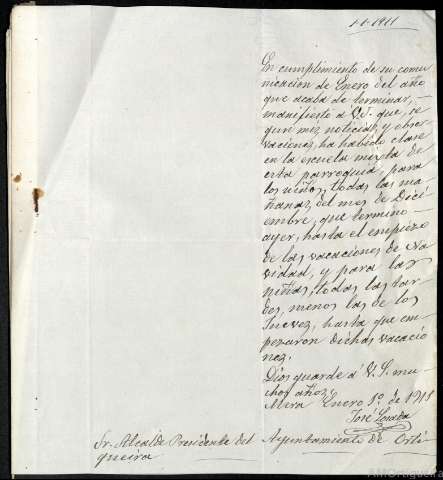 1-1-1911
En cumplimiento de su comu
nicación de Enero del año
que acaba de terminar, -
manifiesto á V.S. que, se
gun mis noticias y obser
vaciones, ha habido clase
en la escuela mixta de
esta parroquia, para
los niños, todas las ma
ñanas, del mes de Dici
embre, que termino
ayer, hasta el empiezo
de las vacaciones de Na
vidad, y para las
niñas, todas las tar
des, menos las de los
Jueves, hasta que em
pezaron dichas vacacio
nes.
Dios guarde á V. S. mu
chos años.
Mera Enero 1º de 1911
José
Sr. Alcalde Presidente del Ayuntamiento de Orti
gueira
AMOrtigueira